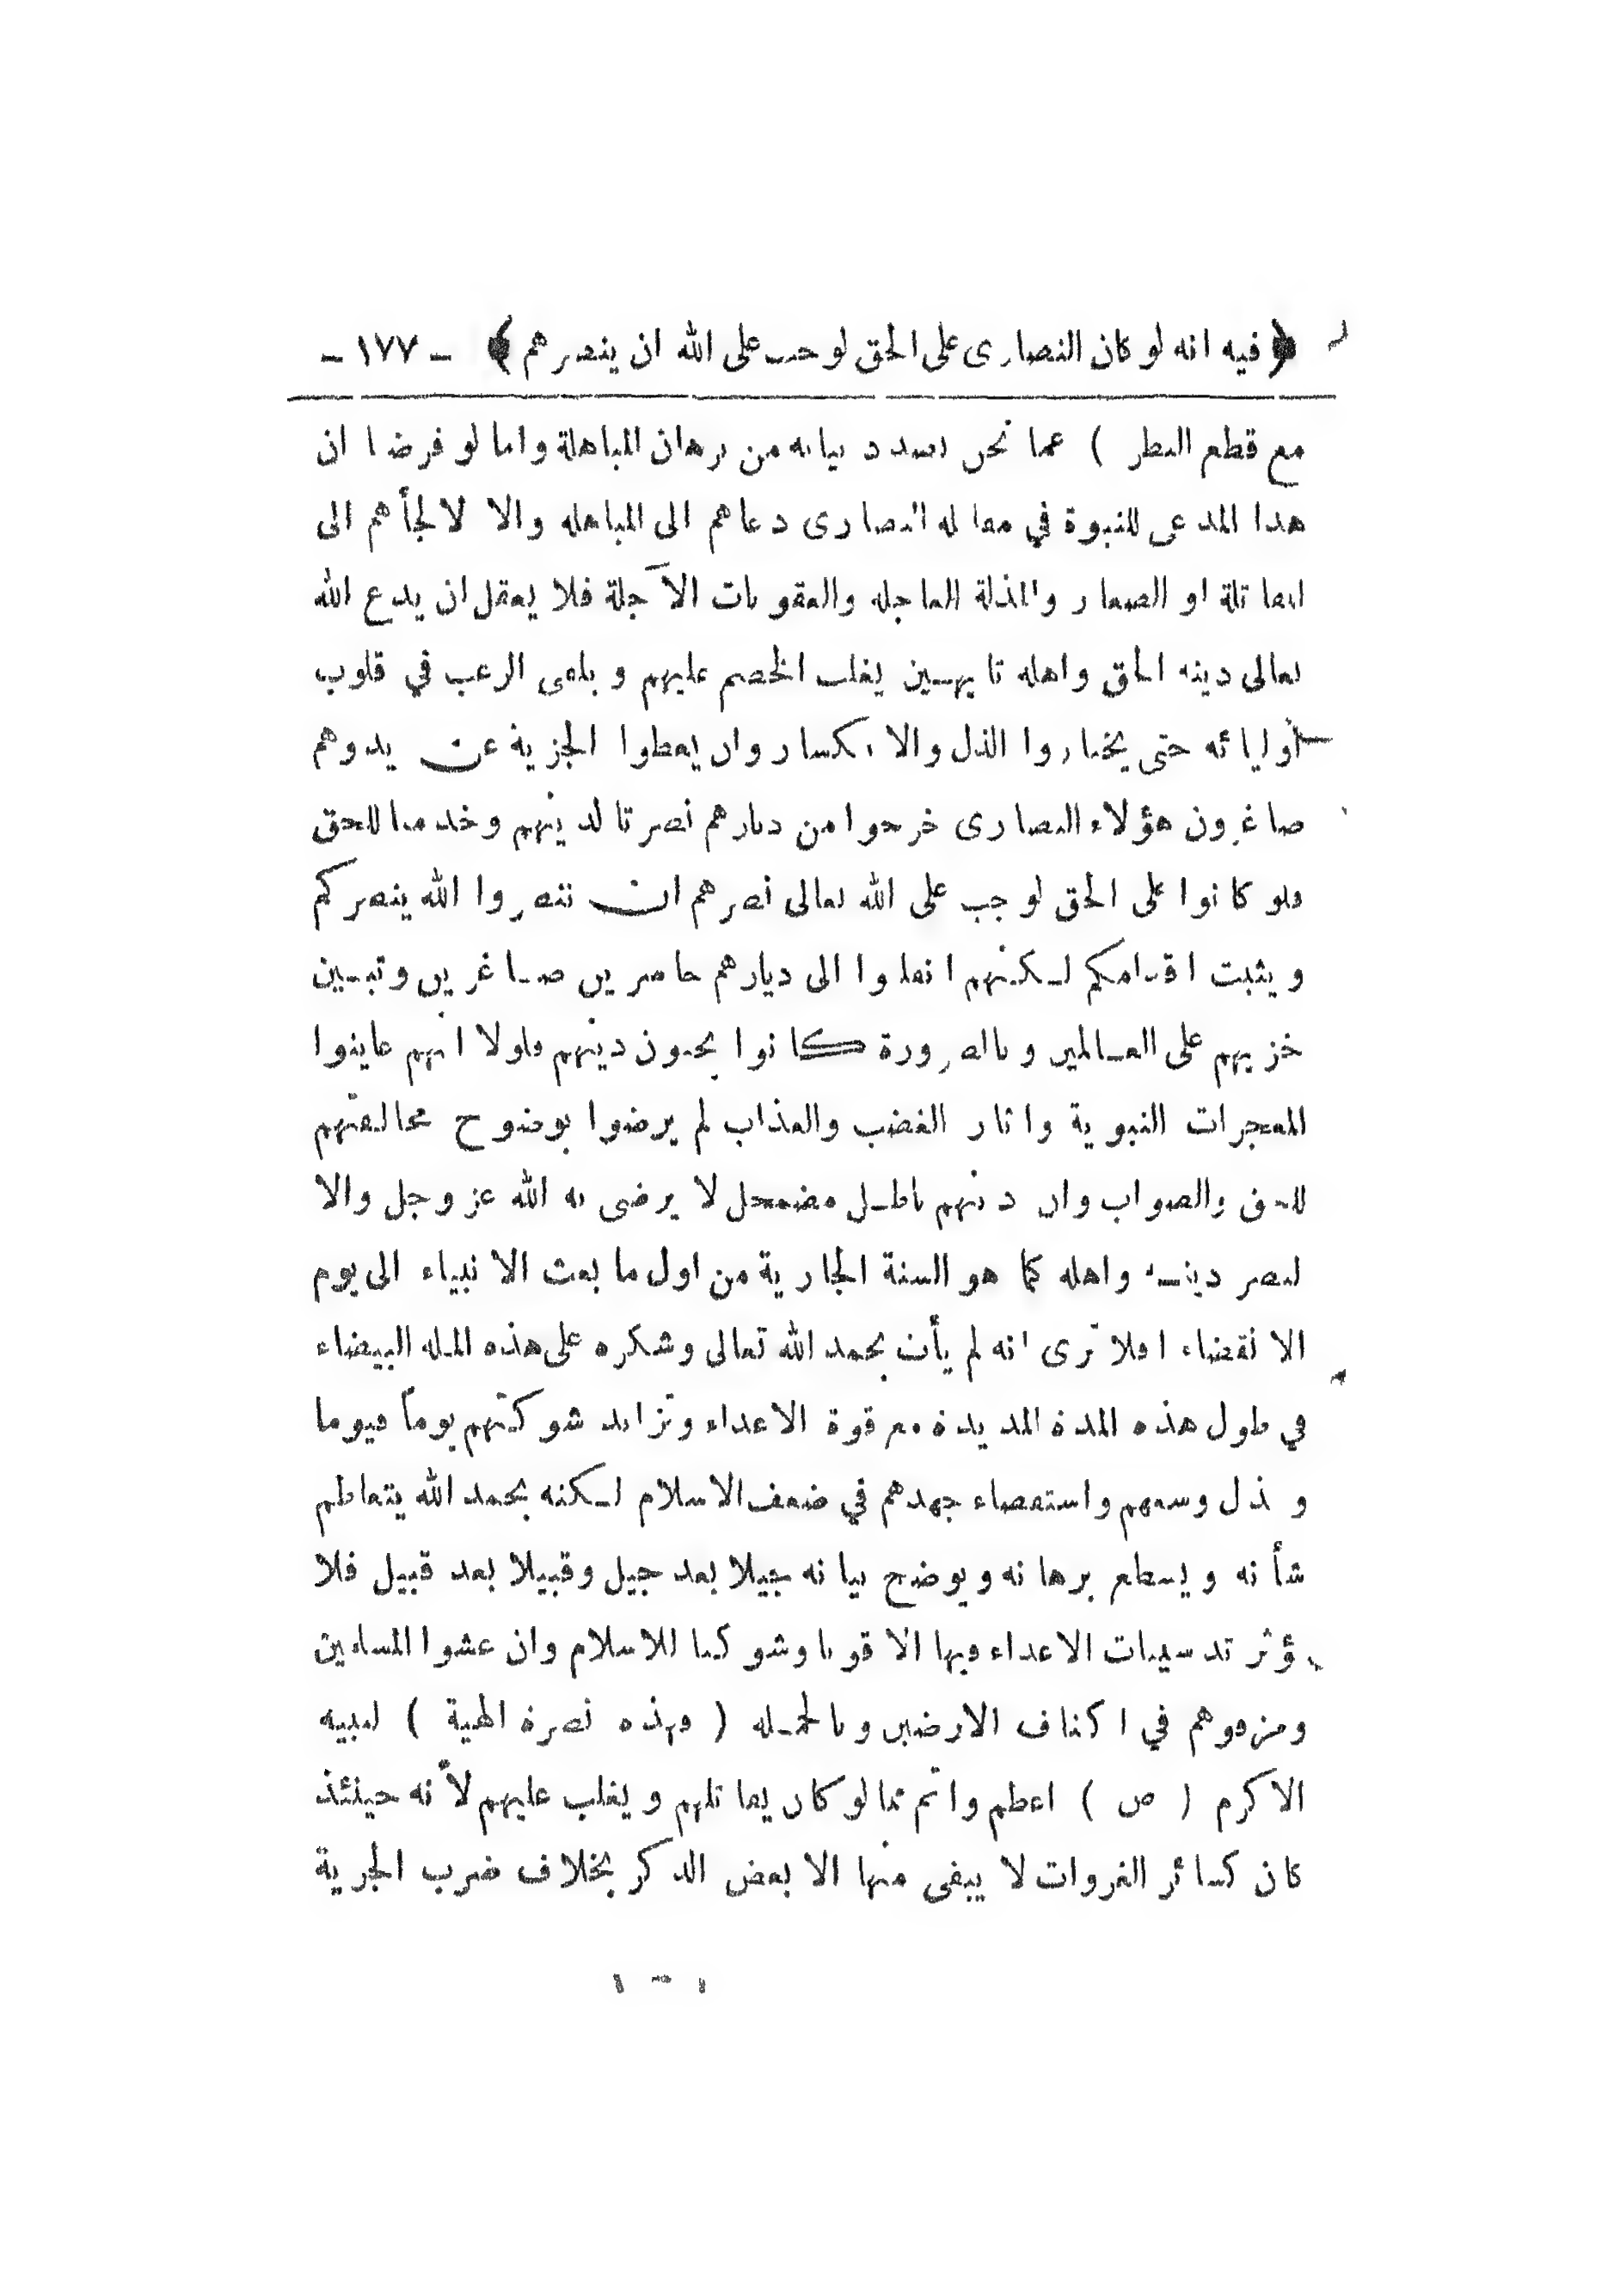 ﴿ فيه انه لو كان النصارى على الحق لوجب على الله ان ينصرهم ﴾ – ١٧٧ –
مع قطع النظر ) عما نحن بصدد بيانه من برهان المباهلة واما لو فرضنا ان
هذا المدعى للنبوة في مقابلة النصارى دعاهم الى المباهلة والا لالجأهم الى
المقاتلة او الصغار والمذلة العاجلة والعقوبات الآجلة فلا يعقل ان يدع الله
تعالى دينه الحق واهله تايهـين يغلب الخصم عليهم ويلقى الرعب في قلوب
أوليائه حتى يختاروا الذل والانكسار وان يعطوا الجزية عن يد وهم
صاغرون هؤلاء النصارى خرجوا من ديارهم نصرتا لدينهم وخدمتا للحق
فلو كانوا على الحق لوجب على الله تعالى نصرهم ان تنصروا الله ينصركم
ويثبت اقدامكم لـكنهم انقلبوا الى ديارهم خاسرين صـاغرين وتبـين
خزيهم على العـالمين وبالضرورة كانوا يحبون دينهم فلولا انهم عاينوا
المعجزات النبوية واثار الغضب والعذاب لم يرضوا بوضوح مخالفتهم
للحق والصواب وان دينهم باطـل مضمحل لا يرضى به الله عز وجل والا
لنصر دينـه واهله كما هو السنة الجارية من اول ما بعث الانبياء الى يوم
الانقضاء افلا ترى انه لم يأت بحمد الله تعالى وشكره على هذه الملة البيضاء
في طول هذه المدة المديدة مع قوة الاعداء وتزايد شوكتهم يوماً فيوما
وبذل وسعهم واستقصاء جهدهم في ضعف الاسلام لـكنه بحمد الله يتعاظم
شأنه ويسطع برهانه ويوضح بيانه جيلا بعد جيل وقبيلا بعد قبيل فلا
يؤثر تدسيسات الاعداء فيها الا قوتا وشوكتا للاسلام وان غشوا المسلمين
ومزقوهم في اكناف الارضين وبالجمـلة ( فهذه نصرة الهية ) لنبيه
الاكرم ( ص ) اعظم واتم مما لو كان يقاتلهم ويغلب عليهم لأنه حينئذ
كان كسائر الغزوات لا يبقى منها الا بعض الذكر بخلاف ضرب الجزية